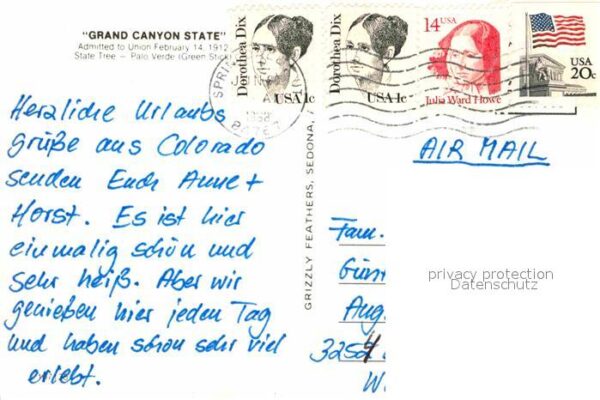 "GRAND CANYON STATE"
Admitted to Union February 14, 1912
State Tree — Palo Verde (Green Stick)
Dorothea Dix
USA 1c
Dorothea Dix
USA 1c
14 USA
Julia Ward Howe
USA
20c
Herzliche Urlaubs
grüße aus Colorado
senden Euch Anne +
Horst. Es ist hier
einmalig schön und
sehr heiß. Aber wir
genießen hier jeden Tag
und haben schon sehr viel
erlebt.
GRIZZLY FEATHERS, SEDONA,
AIR MAIL
Fam.
privacy protection
Datenschutz
Aug.
3254
W.